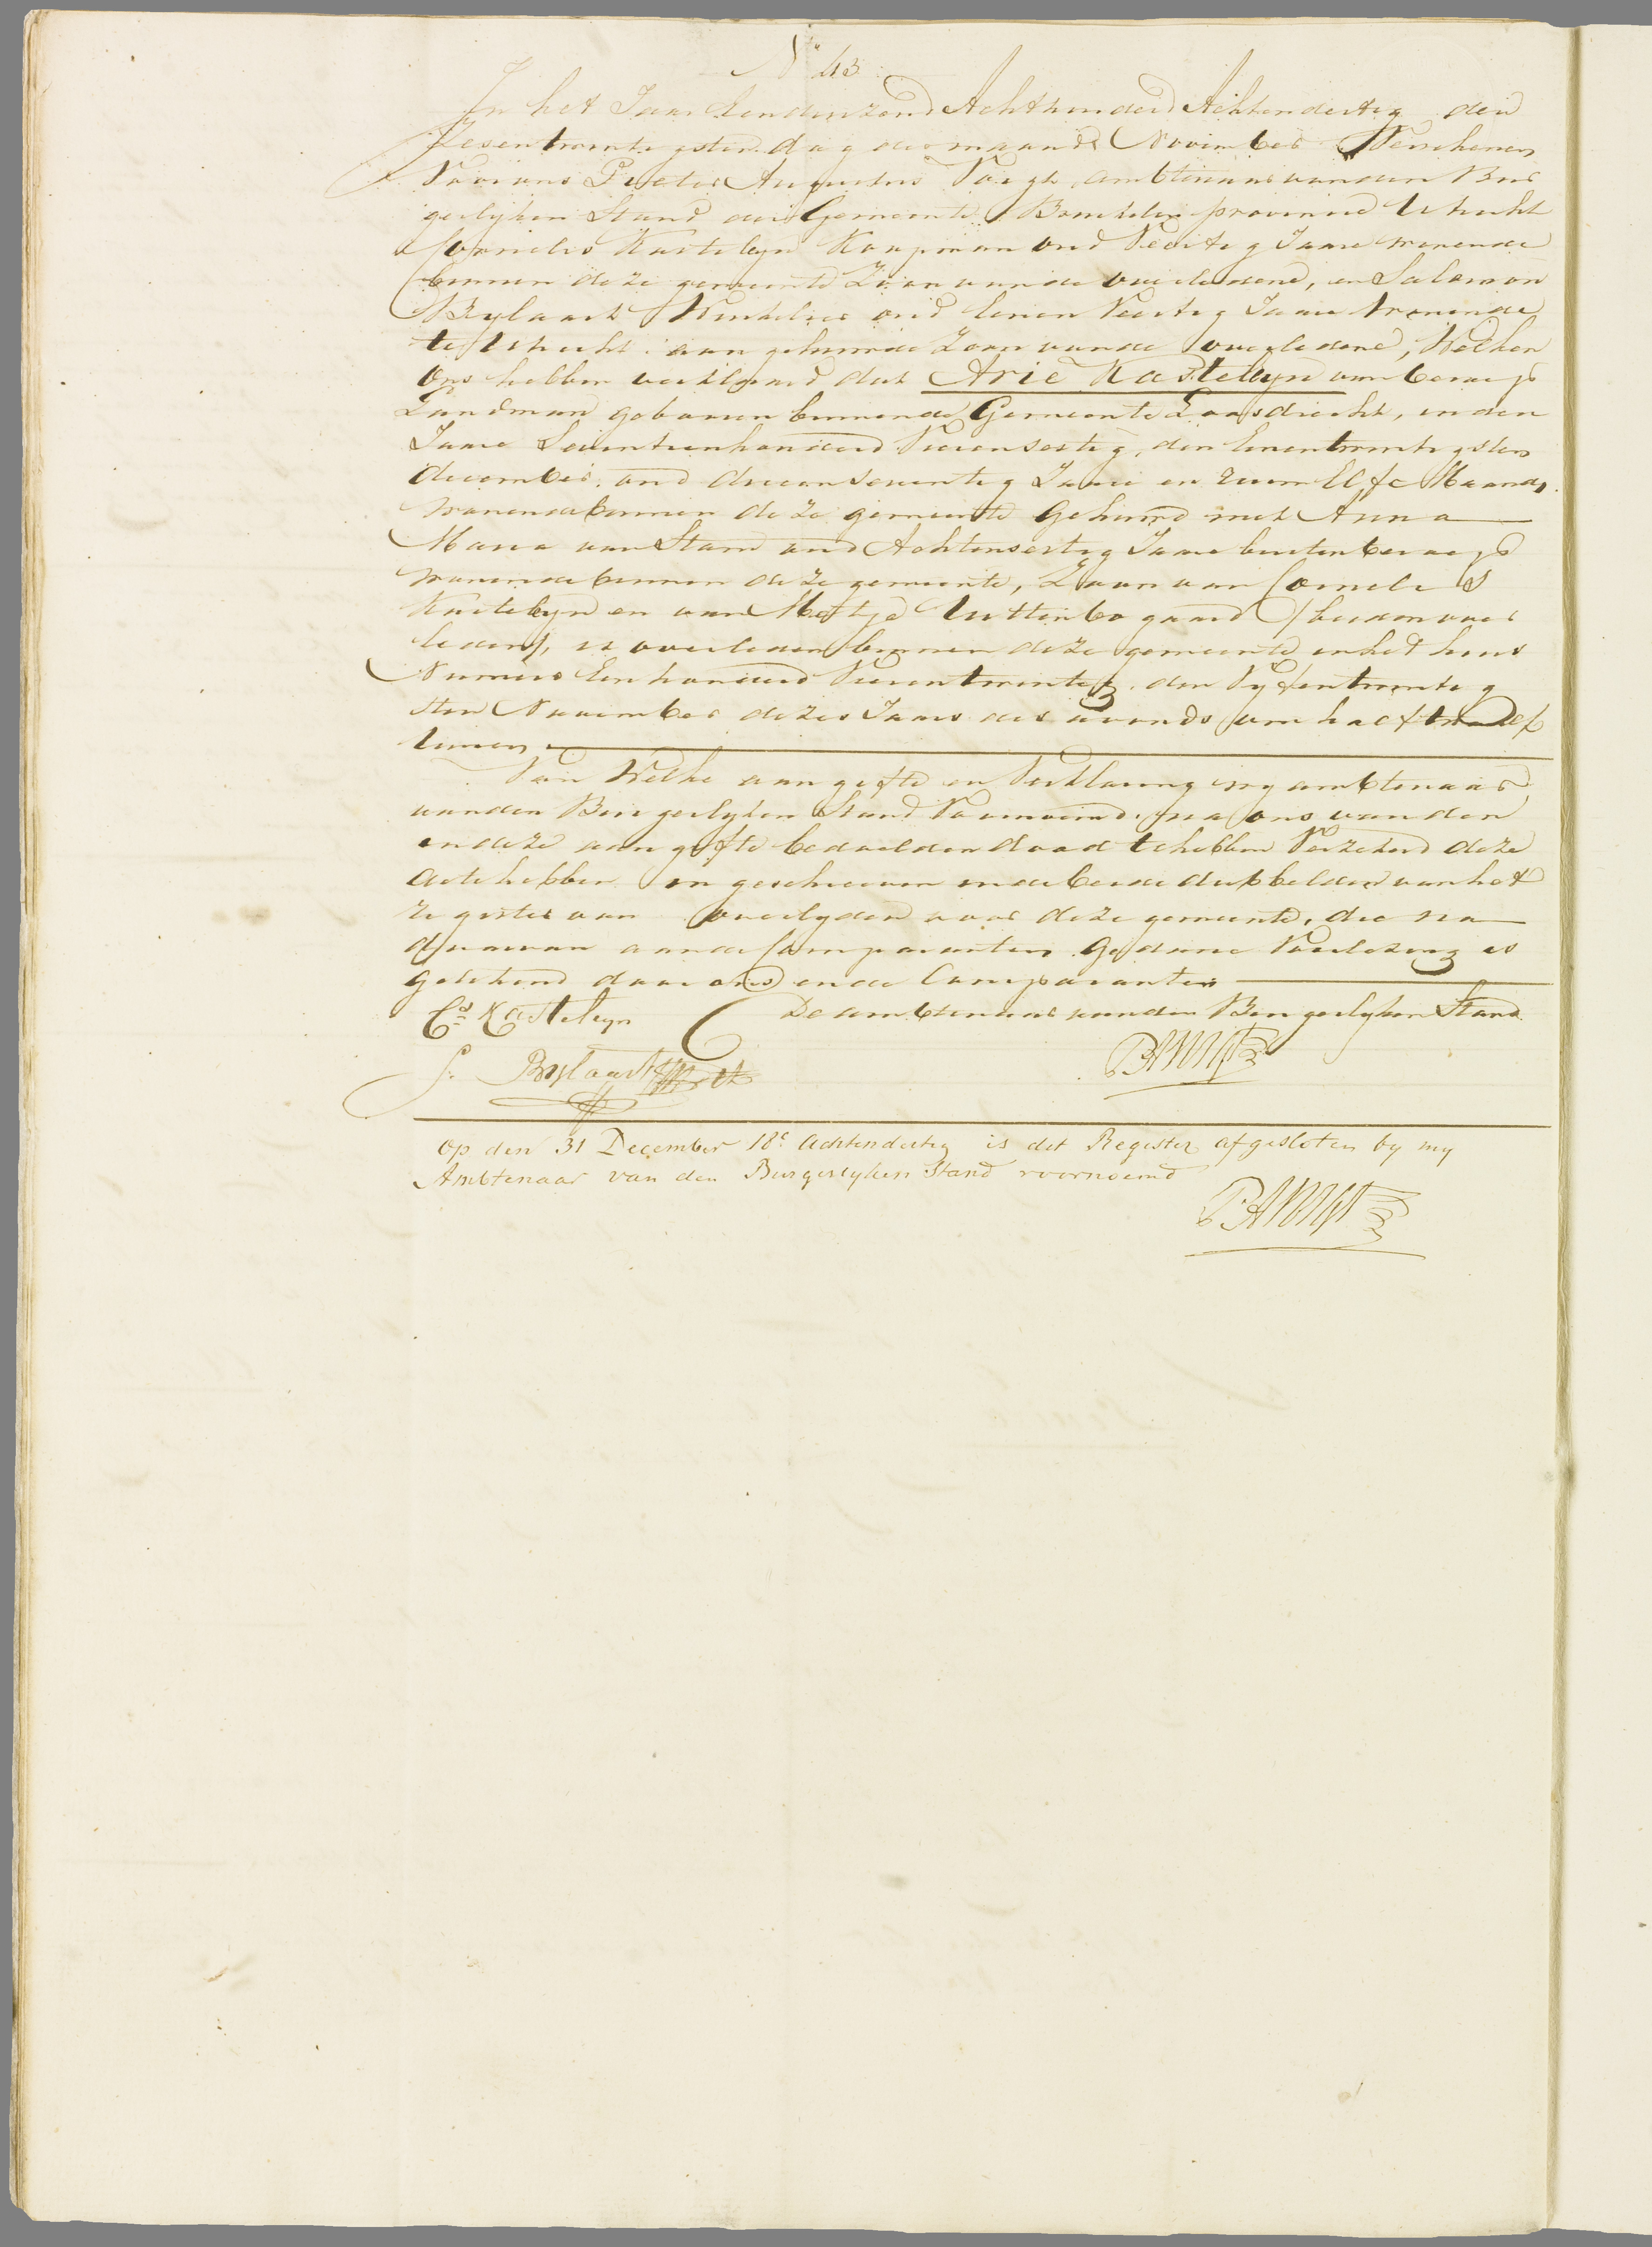 N° 43
In het Jaar Eenduizend Achthonderd Achtendertig den
Zesentwintigsten dag der maand November Verschenen
Voor ons Pieter Augustus Voigt ambtenaar van den Bur
gerlyken Stand der Gemeente Breukelen provincie Utrecht
Cornelis Kastelyn Koopman oud Veertig Jaare wonende
binnen deze gemeente Zoon van de overledene, en Salomon
Bylaart Winkelier oud Eenen Veertig Jaare wonende
te Utrecht aan gehuwde Zoon van de overledene, Welken
Ons hebben verklaard dat Arie Kastelyn van beroep
Landman geboren binnen de Gemeente Loosdrecht, in den
Jaare Seventienhonderd Vierensestig, den Eenentwintigsten
december, oud drieenseventig Jaare en ruim Elfe Maande,
wonende binnen deze gemeente Gehuwd met Anna
Maria van Stam oud Achtensestig Jaare buiten beroep
wonende binnen deze gemeente, Zoon van Cornelis
Kastelyn en van Metje Uittenbogaard (beiden over
leden), is overleden binnen deze gemeente in het huis
Numero Een honderd Vierentwintig, den Vyfentwintig
sten November dezes Jaars des avonds om half
Van Welke aangifte en Verklaring wy ambtenaar
van den Burgerlyken Stand Voornoemd, na ons van den
in deze aangifte bedoelden dood te hebben Verzekerd deze
acte hebben in geschreven in de beide dubbelden van het
register van overlyden voor deze gemeente, die na
dat daarvan aan de Comparanten Gedane Voorlezing is
getekend door ons en de Comparanten
Cs Kasteleyn De ambtenaar van den Burgerlyken Stand
S. Bylaart
Op den 31 December 18e achtendertig is dit Register afgesloten by my
Ambtenaar van den Burgerlyken Stand voornoemd